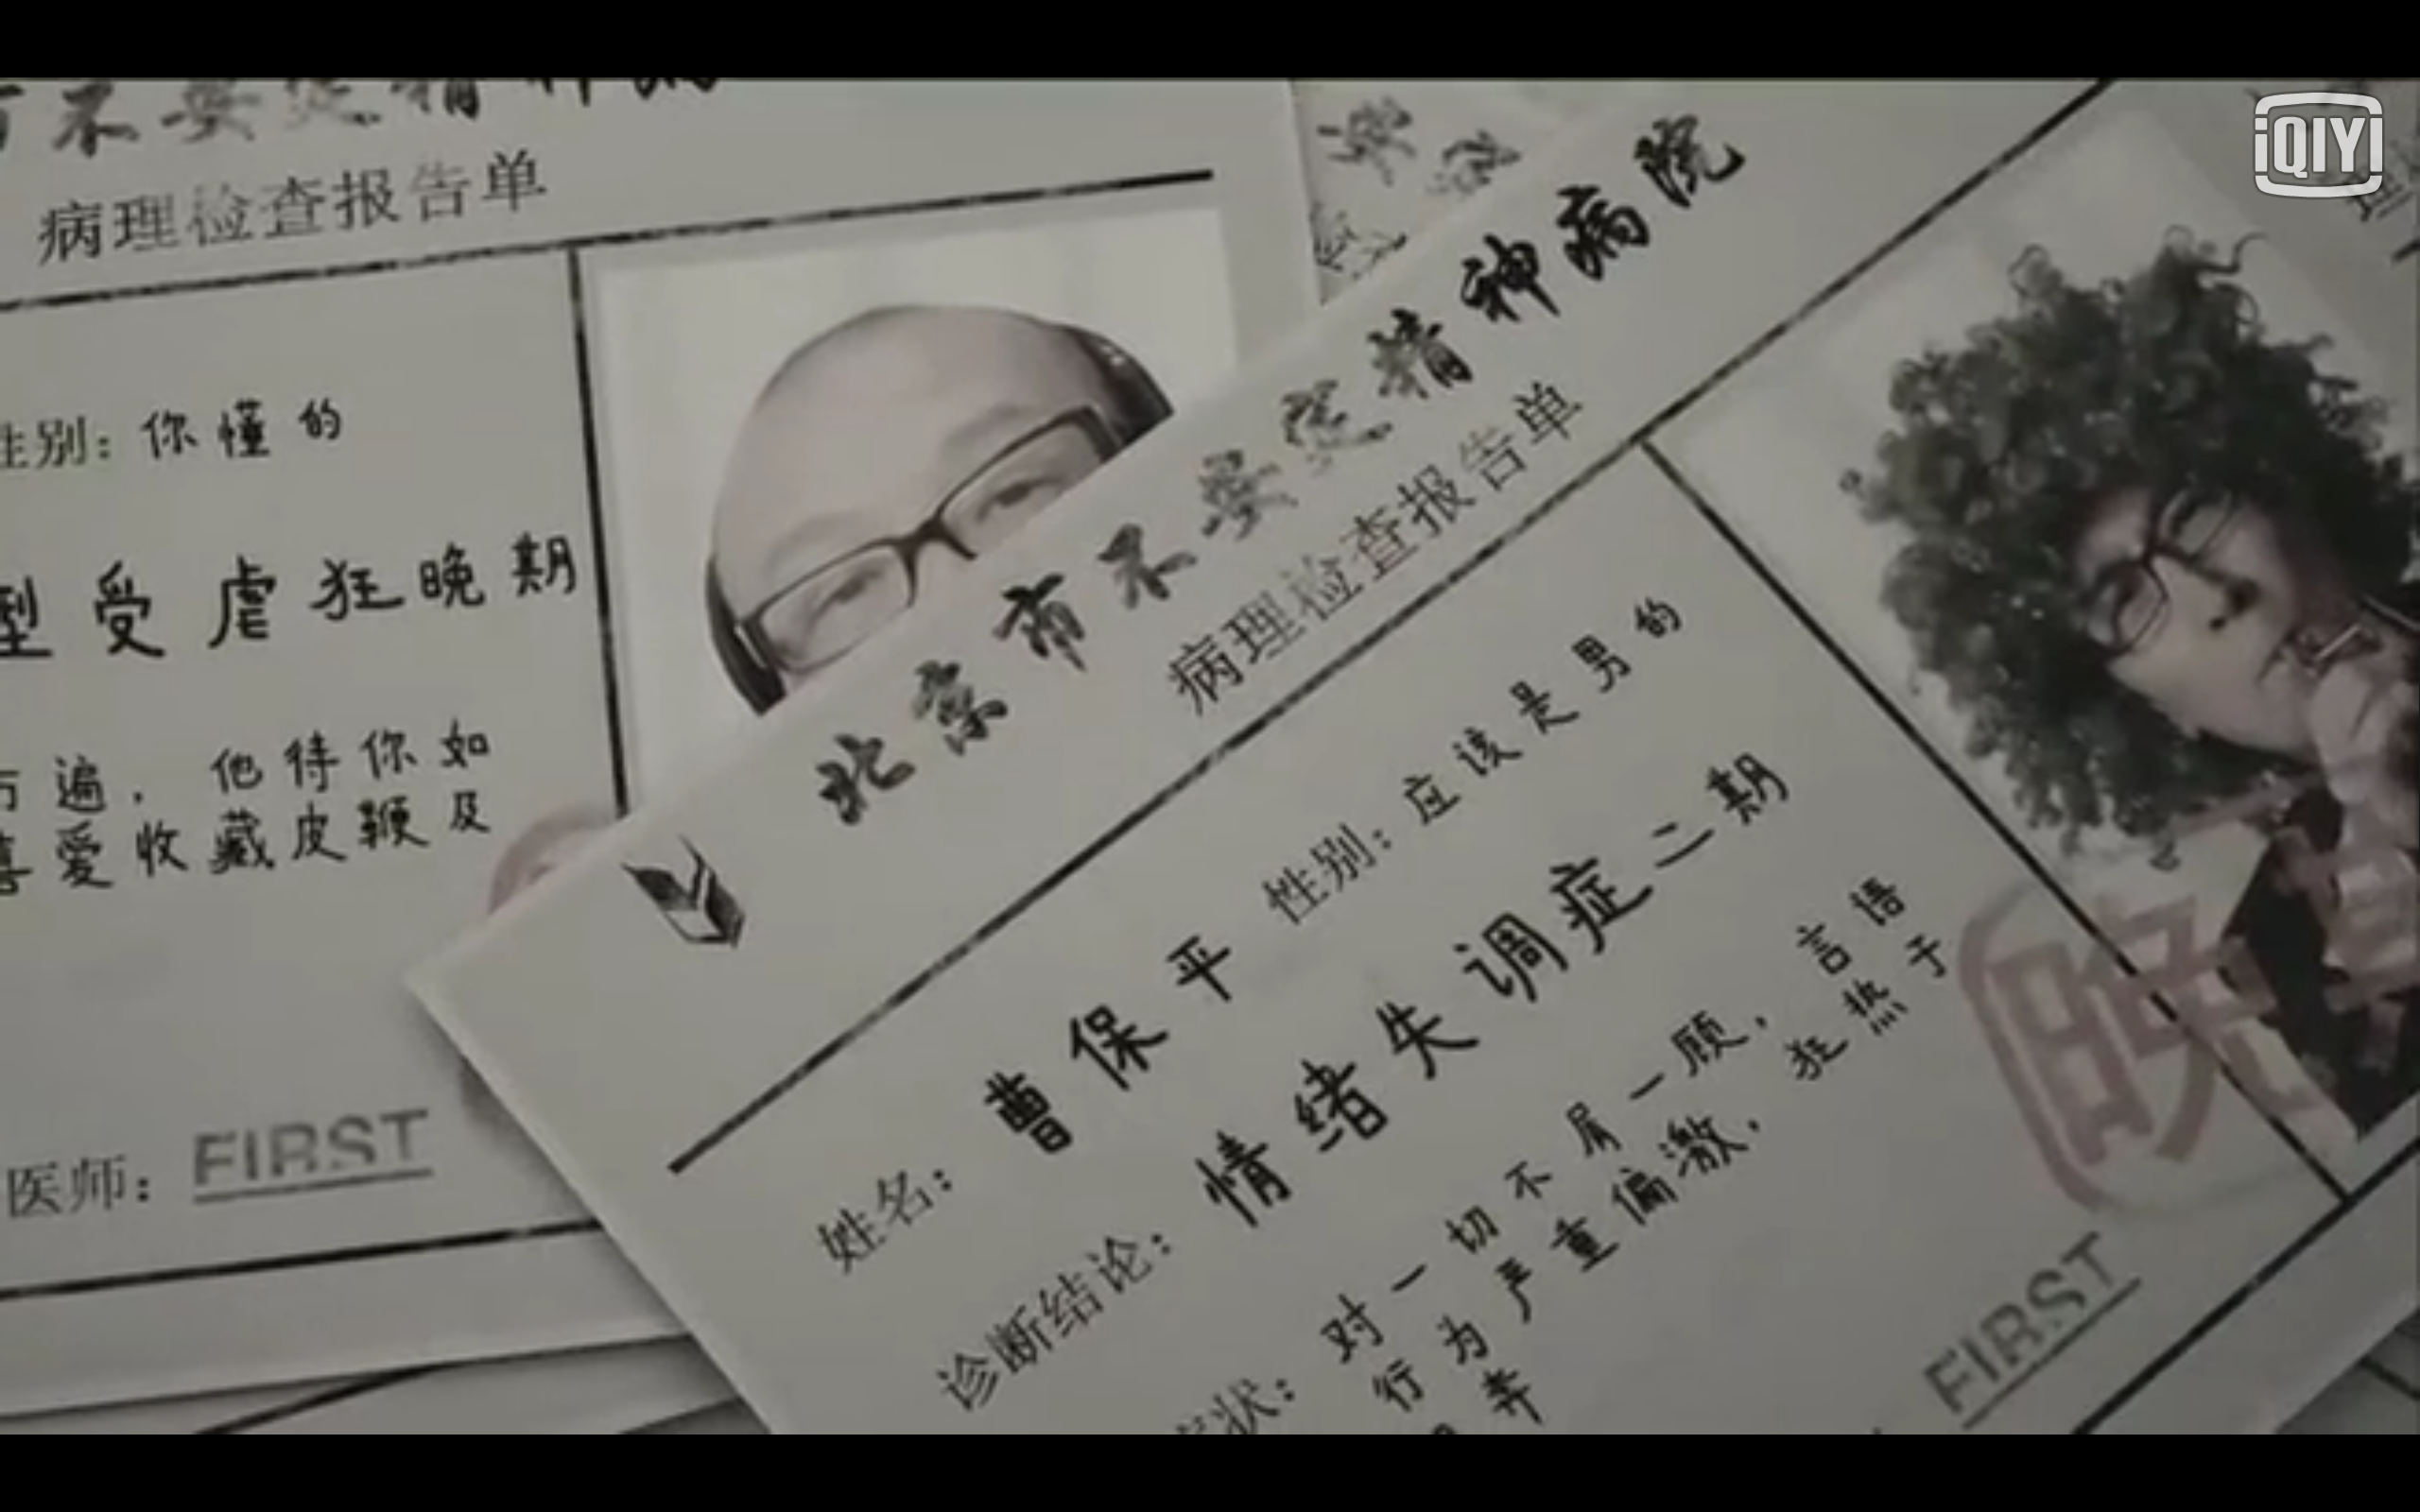 不安定精神病
病理检查报告单
性别：你懂的
型受虐狂晚期
万遍，他待你如
喜爱收藏皮鞭及
医师：FIRST
北京市不安定精神病院
病理检查报告单
姓名：曹保平 性别：应该是男的
诊断结论：情绪失调症二期
状：对一切不屑一顾，言语
行为严重偏激，狂热于
FIRST
iQIYI